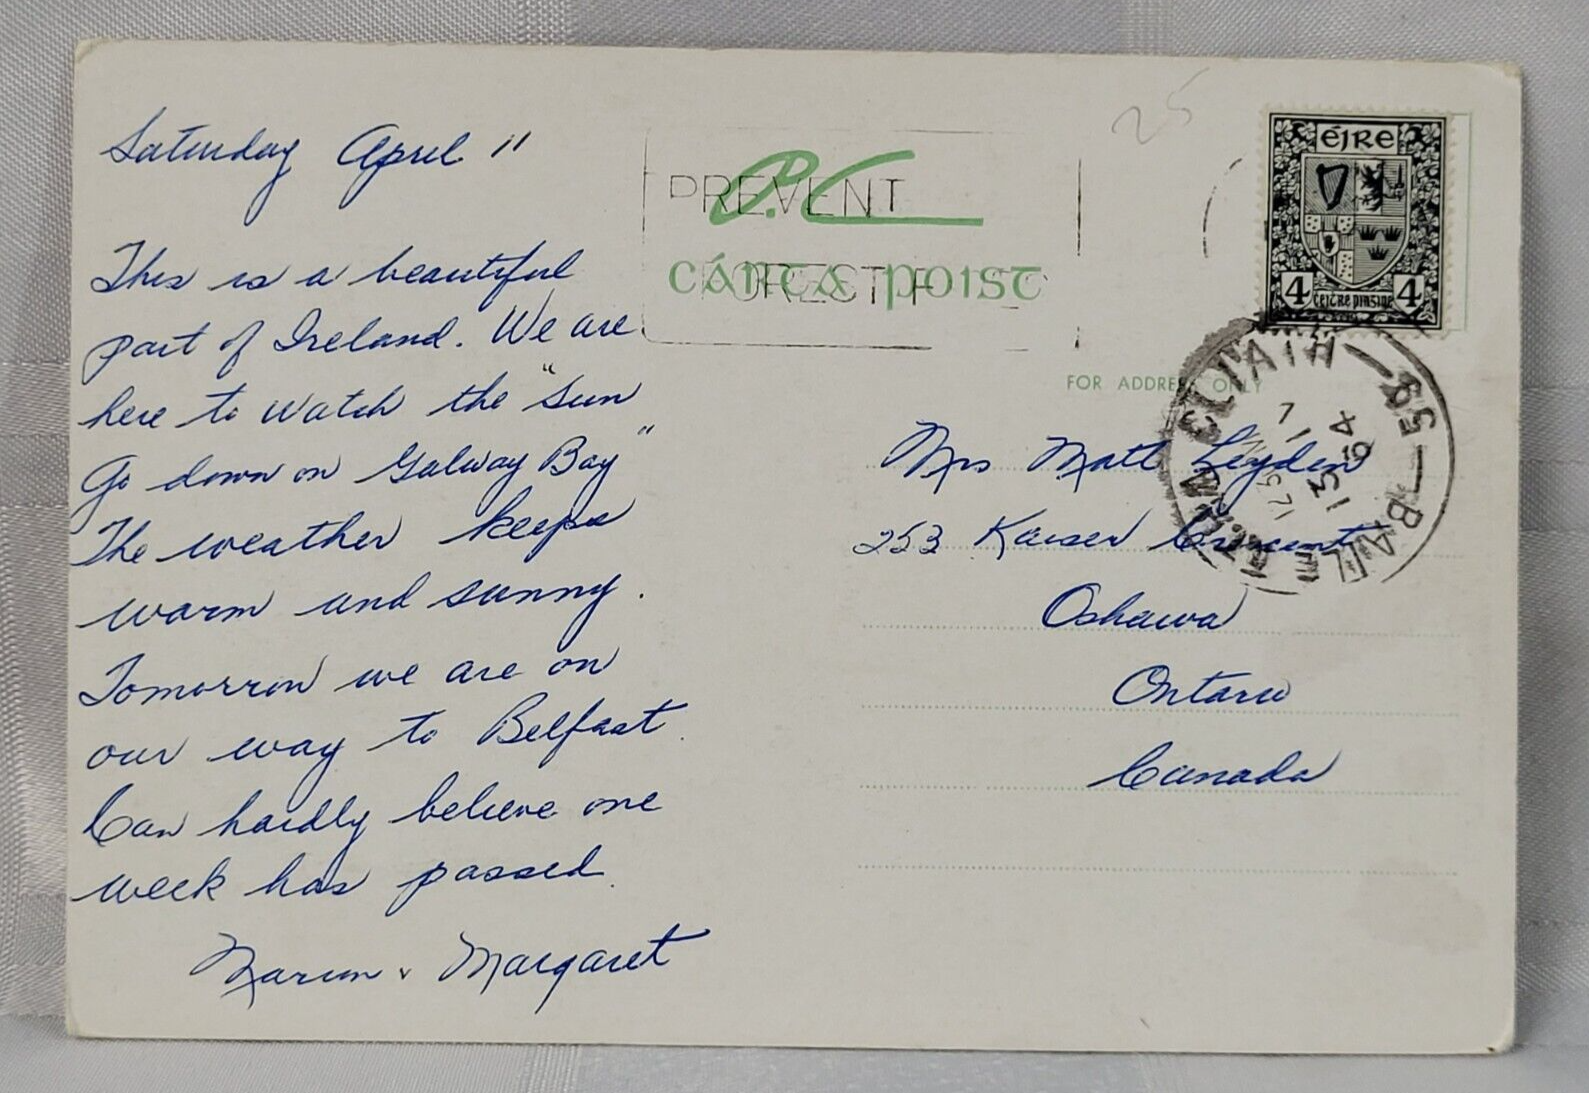 Saturday April 11
This is a beautiful
part of Ireland. We are
here to watch the "Sun
Go down on Galway Bay"
The weather keeps
warm and sunny.
Tomorrow we are on
our way to Belfast.
Can hardly believe one
week has passed.
Marion & Margaret
25
P.C.
CÁRTA POIST
PREVENT
FOREST
FOR ADDRESS ONLY
éire
4 ceitre pingine 4
BAILE
CLIATH
Mrs Matt Leyden
253 Kaiser Crescent
Oshawa
Ontario
Canada